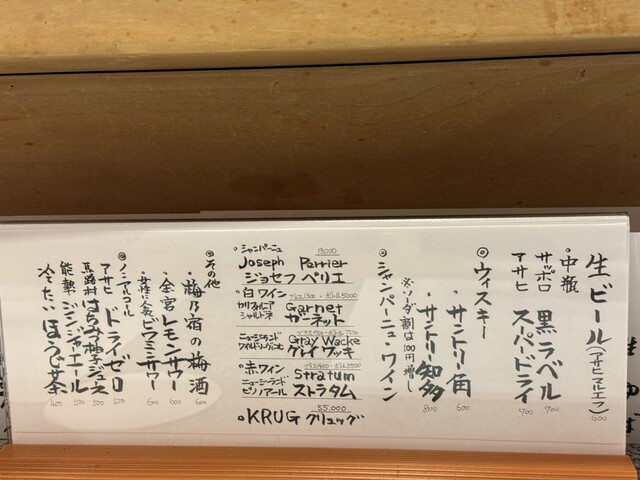 生ビール(アサヒマルエフ) 600
・中瓶
サッポロ 黒ラベル 700
アサヒ スーパードライ 700
◎ウィスキー
・サントリー角 600
・サントリー知多 800
※ソーダ割は100円増し
◎シャンパーニュ・ワイン
・シャンパーニュ 13000
Joseph Perrier
ジョセフ ペリエ
・白ワイン グラス1300・ボトル5000
カリフォルニア Garnet
シャルドネ ガーネット
ニュージーランド Gray Wacke
グレイ ワッキ
・赤ワイン
ニュージーランド Stratum
ピノノアール ストラタム
55,000
・KRUG クリュッグ
◎その他
・梅乃宿の梅酒 600
・金宮レモンサワー 600
ビワミンサワー 600
◎ノンアルコール
アサヒ ドライゼロ 500
馬路村 はちみつ柚子ジュース 500
能勢 ジンジャエール 500
冷たい ほうじ茶 400